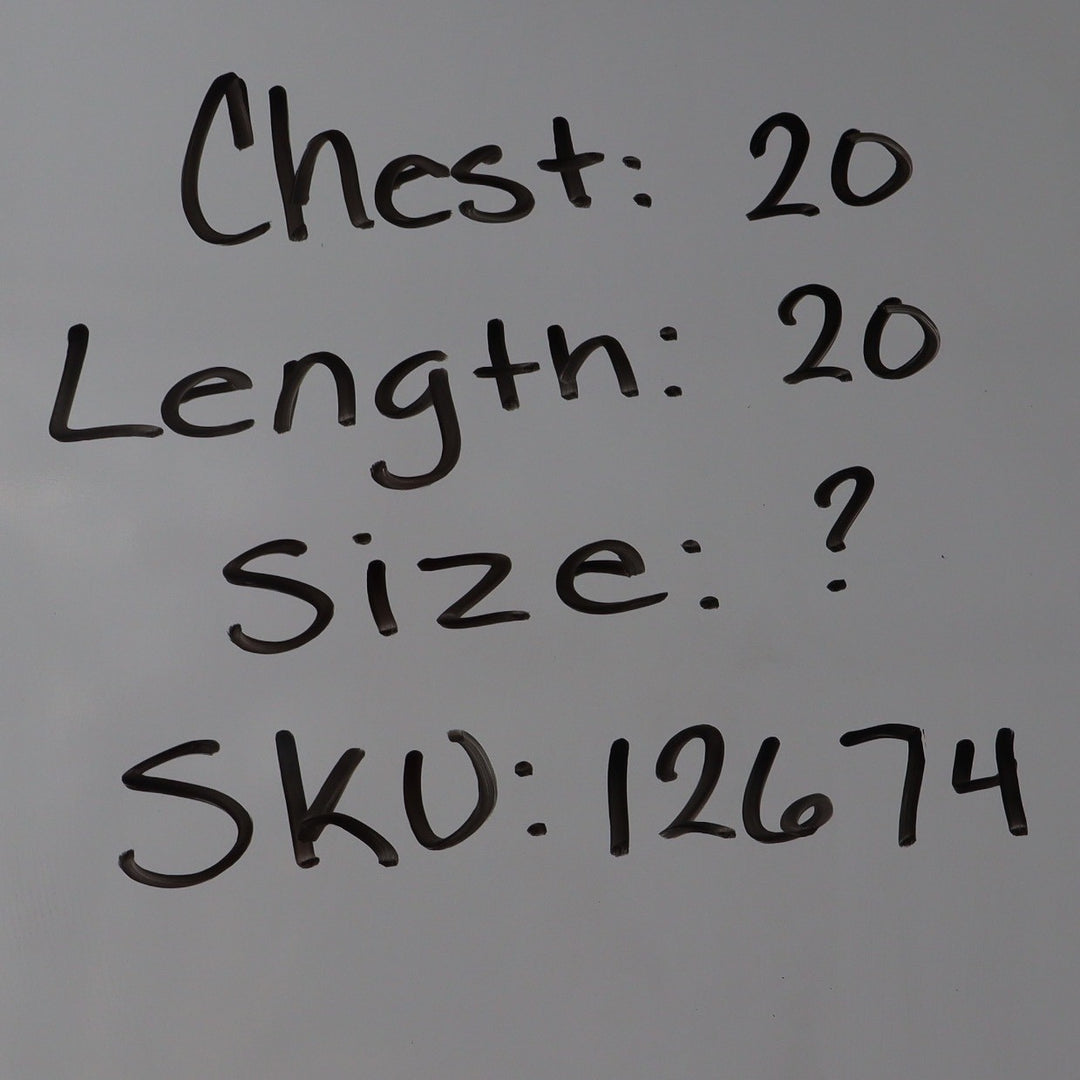 Chest: 20
Length: 20
Size: ?
SKU: 12674